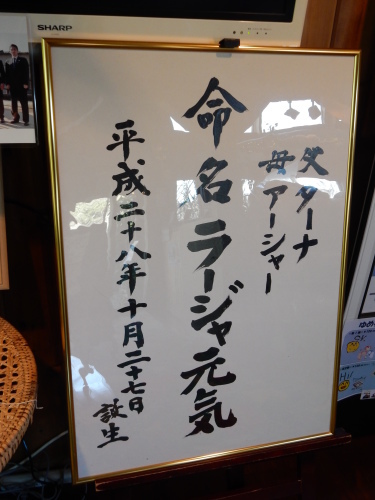 SHARP
父ターナ
母アーシャー
命名ラージャ元気
平成二十八年十月二十七日
誕生